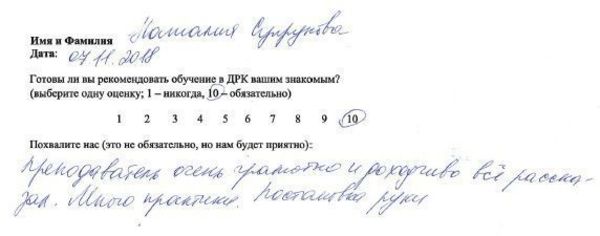 Имя и Фамилия Наталия Супрунова
Дата: 07.11.2018
Готовы ли вы рекомендовать обучение в ДРК вашим знакомым?
(выберите одну оценку; 1 – никогда, 10 – обязательно)
1 2 3 4 5 6 7 8 9 10
Похвалите нас (это не обязательно, но нам будет приятно):
Преподаватель очень грамотно и доходчиво всё расска-
зал. Много практики. Постановка руки